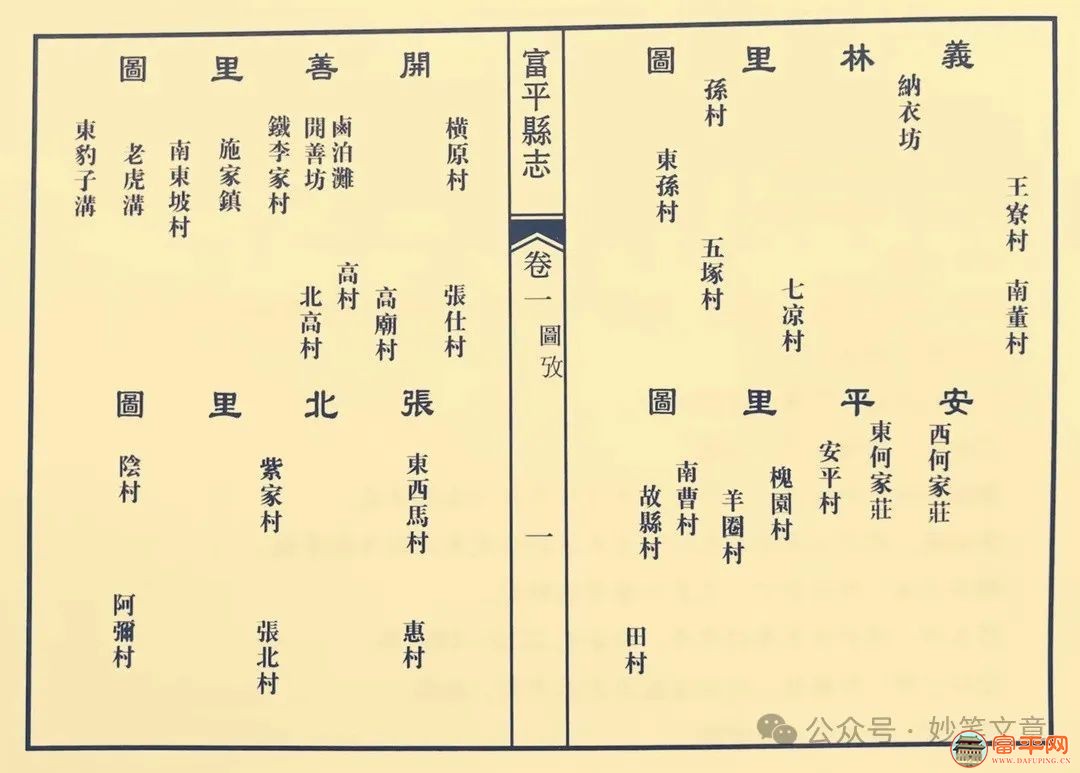 義林里圖
納衣坊
王寮村
南董村
孫村
東孫村
五塚村
七凉村
安平里圖
西何家莊
東何家莊
安平村
槐園村
羊圈村
南曹村
故縣村
田村
富平縣志
卷一
圖攷
一
開善里圖
橫原村
張仕村
鹵泊灘
開善坊
高廟村
高村
北高村
鐵李家村
施家鎮
南東坡村
老虎溝
東豹子溝
張北里圖
東西馬村
惠村
紫家村
張北村
陰村
阿彌村
公众号·妙笔文章
富平网
WWW.DAFUPING.CN